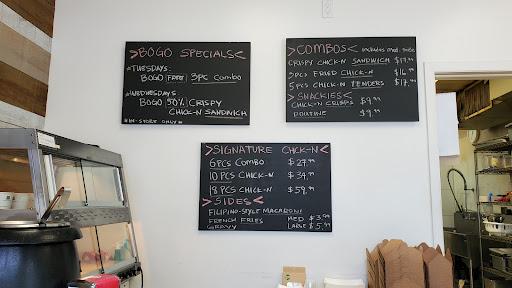 >BOGO SPECIALS<
*TUESDAYS:
BOGO FREE 3PC Combo
*WEDNESDAYS:
BOGO 50% CRISPY
CHICK-N SANDWICH
*IN-STORE ONLY*
>COMBOS< includes med. side
CRISPY CHICK-N SANDWICH $17.99
3PCS FRIED CHICK-N $16.99
5 PCS CHICK-N TENDERS $17.99
>SNACKIES<
CHICK-N CRISPS $9.99
POUTINE $9.99
>SIGNATURE CHCK-N<
6PCS COMBO $27.99
10 PCS CHICK-N $34.99
18 PCS CHICK-N $59.99
>SIDES<
FILIPINO-STYLE MACARONI
FRENCH FRIES MED $3.99
GRAVY LARGE $5.99